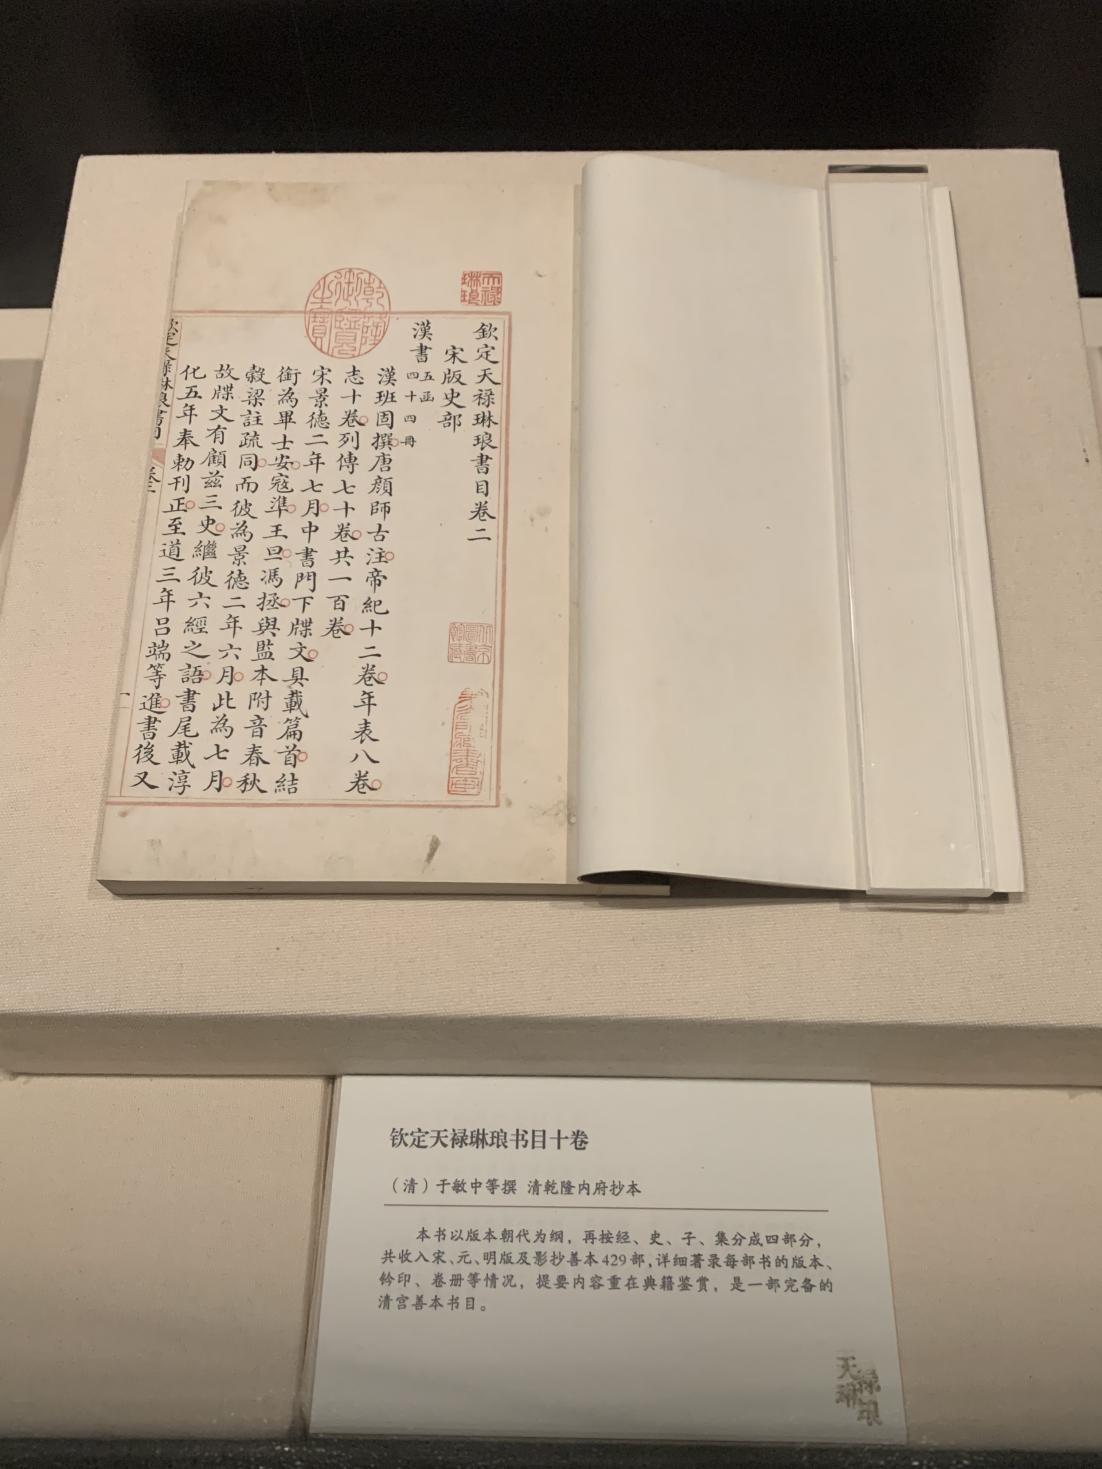 欽定天禄琳琅書目卷二
宋版史部
漢書五函四十四冊
漢班固撰唐顔師古注帝紀十二卷年表八卷
志十卷列傳七十卷共一百卷
宋景德二年七月中書門下牒文具載篇首結
銜為畢士安寇準王旦馮拯與監本附音春秋
穀梁註疏同而彼為景德二年六月此為七月
故牒文有顧兹三史繼彼六經之語書尾載淳
化五年奉勅刊正至道三年呂端等進書後又
欽定天禄琳琅書目
卷二
一
乾隆御覽之寶
天禄琳琅
钦定天禄琳琅书目十卷
（清）于敏中等撰 清乾隆内府抄本
本书以版本朝代为纲，再按经、史、子、集分成四部分，
共收入宋、元、明版及影抄善本429部，详细著录每部书的版本、
钤印、卷册等情况，提要内容重在典籍鉴赏，是一部完备的
清宫善本书目。
天禄琳琅